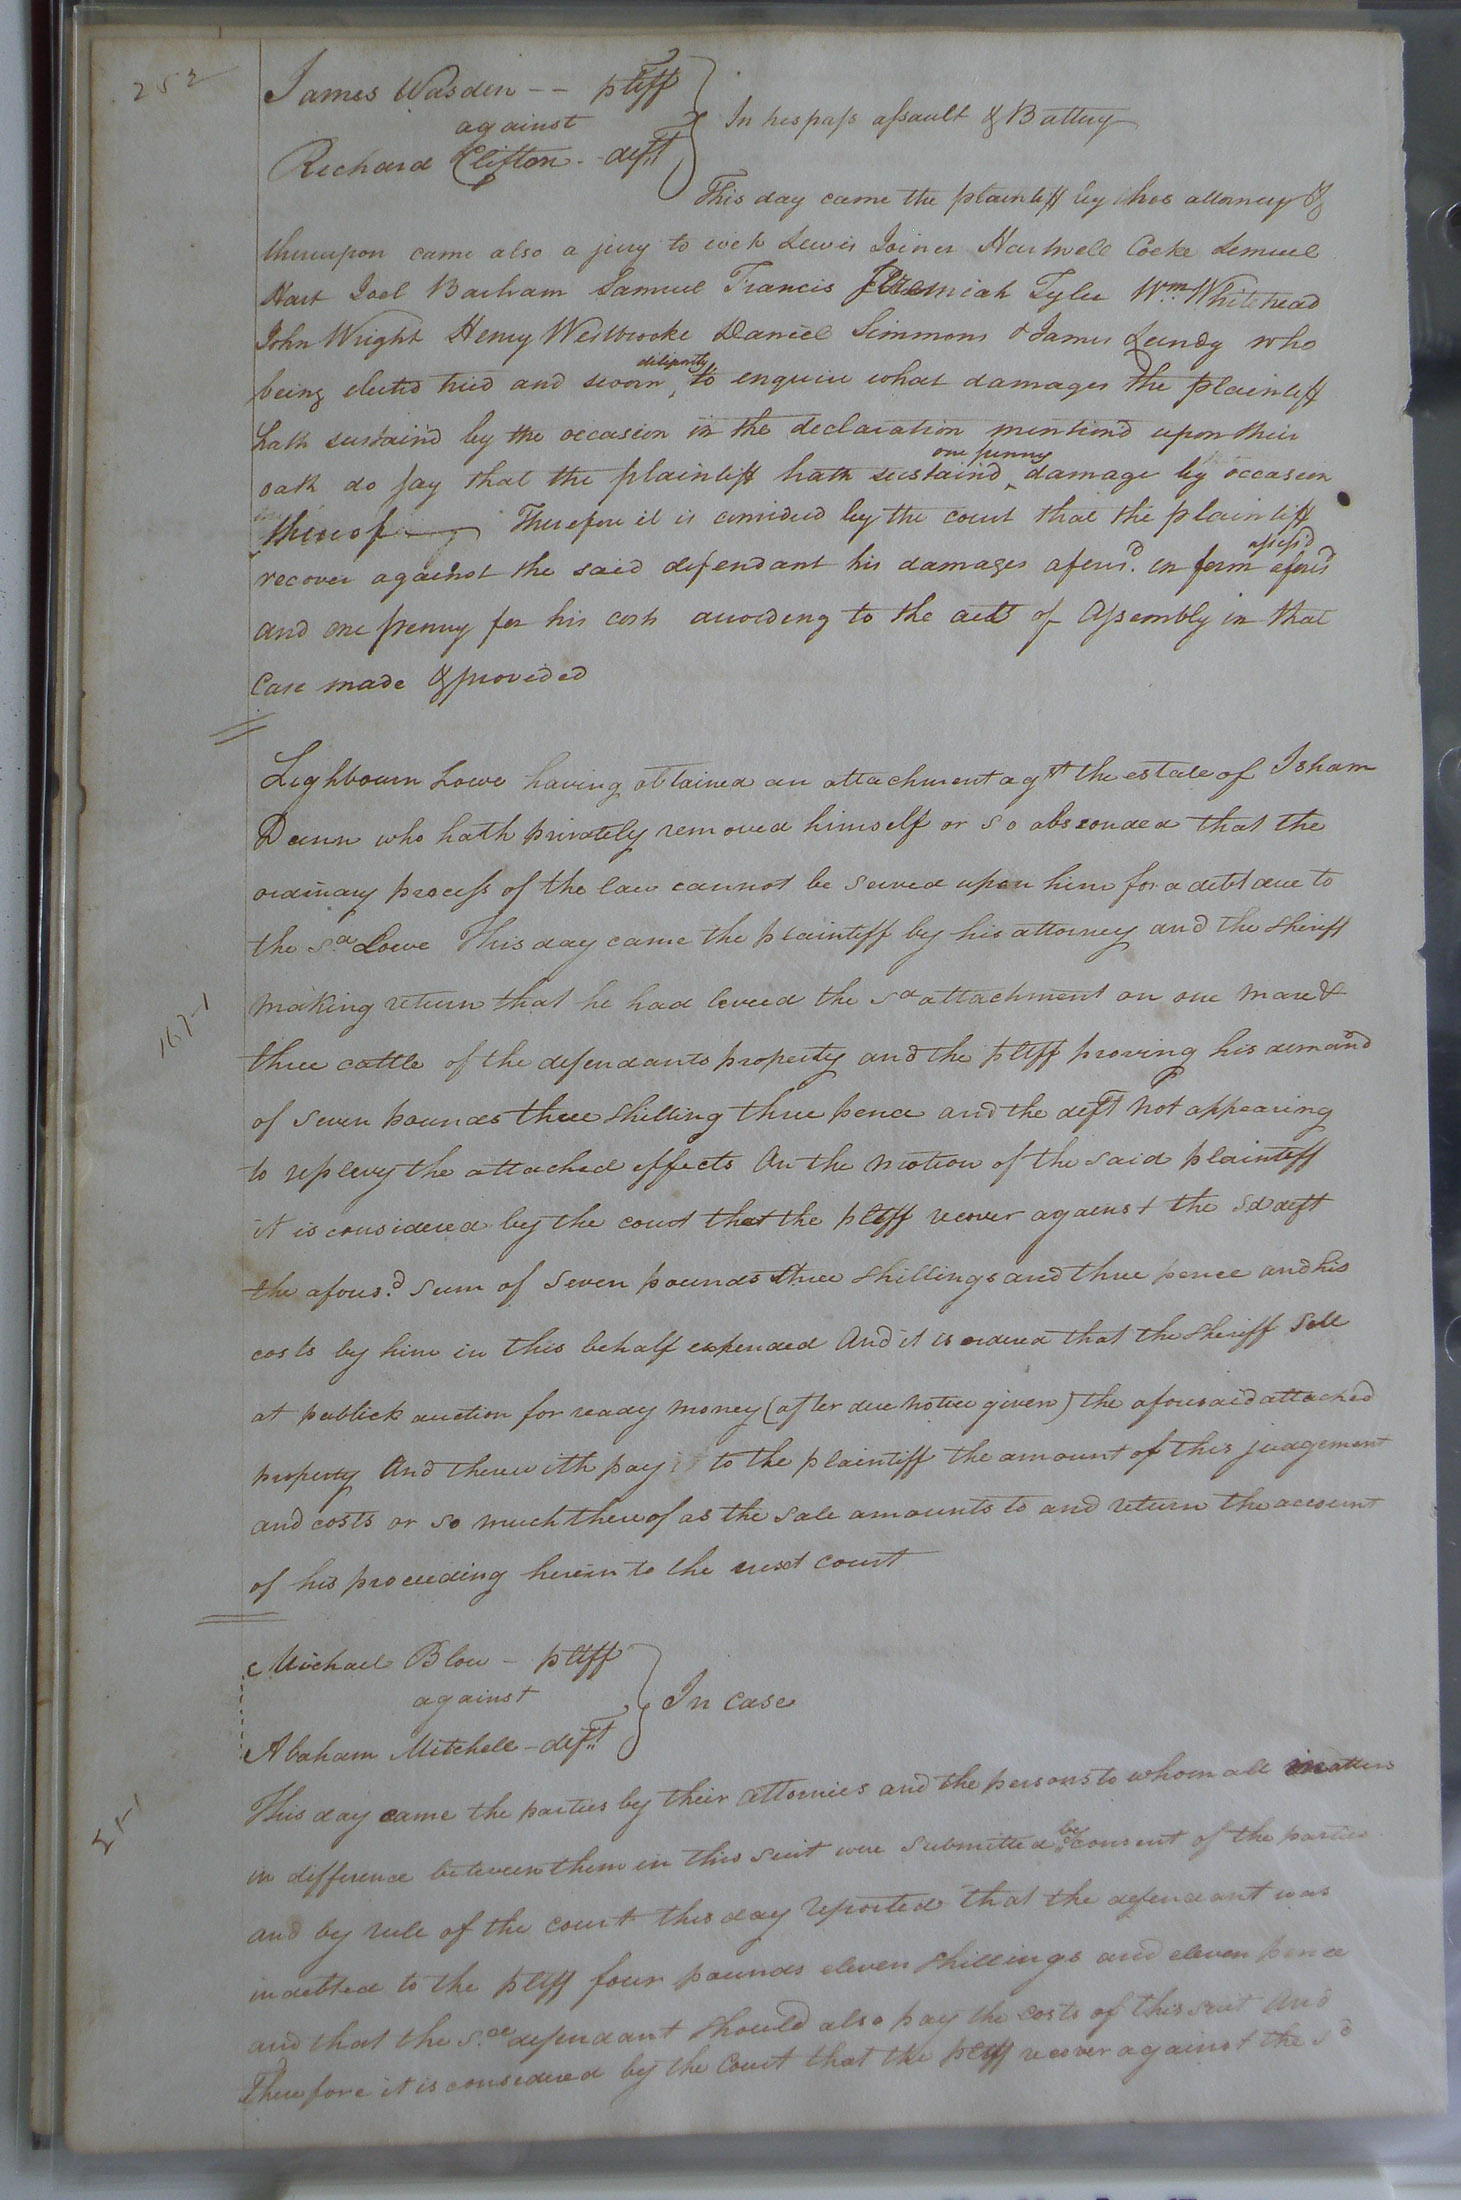 252
James Wasden -- pltff
against
Richard Clifton - deft
In trespass assault & Battery
This day came the plaintiff by his attorney &
thereupon came also a jury to wit Lewis Joiner Hartwell Cocke Lemuel
Hart Joel Barham Samuel Francis Jeremiah Tyler Wm Whitehead
John Wright Henry Westbrooke Daniel Simmons & James Lundy who
being elected tried and sworn diligently to enquire what damages the plaintiff
hath sustain'd by the occasion in the declaration mention'd upon their
oath do say that the plaintiff hath sustain'd one penny damage by occasion
thereof — Therefore it is considered by the court that the plaintiff
recover against the said defendant his damages afores.d in form afores'd assess'd
and one penny for his costs according to the act of Assembly in that
Case made & provided
Lighbourn Lowe having obtained an attachment agt the estate of Isham
Dunn who hath privately removed himself or so absconded that the
ordinary process of the law cannot be served upon him for a debt due to
the sd Lowe This day came the plaintiff by his attorney and the Sheriff
making return that he had levied the sd attachment on one mare &
three cattle of the defendants property and the pltff proving his demand
of seven pounds three Shilling three pence and the deft not appearing
to replevy the attached effects On the motion of the said plaintiff
it is considered by the court that the pltff recover against the sd deft
the afores.d sum of seven pounds three shillings and three pence and his
costs by him in this behalf expended And it is ordered that the Sheriff Sell
at publick auction for ready money (after due notice given) the aforesaid attached
property And therewith pay to the plaintiff the amount of this judgement
and costs or so much thereof as the sale amounts to and return the account
of his proceeding herein to the next court
167-1
Michael Blow - pltff
against
Abaham Mitchell - deft
In Case
This day came the parties by their attornies and the persons to whom all matters
in difference between them in this suit were submitted by consent of the parties
and by rule of the court this day reported that the defendant was
indebted to the pltff four pounds eleven shillings and eleven pence
and that the s.d defendant should also pay the costs of this suit And
Therefore it is considered by the Court that the pltff recover against the sd